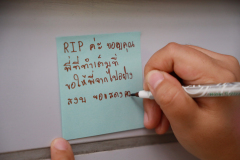 RIP ค่ะ ขอบคุณ
พี่ที่ทำเต็มที่
ขอให้พี่จากไปอย่าง
สงบ ขอแสดง